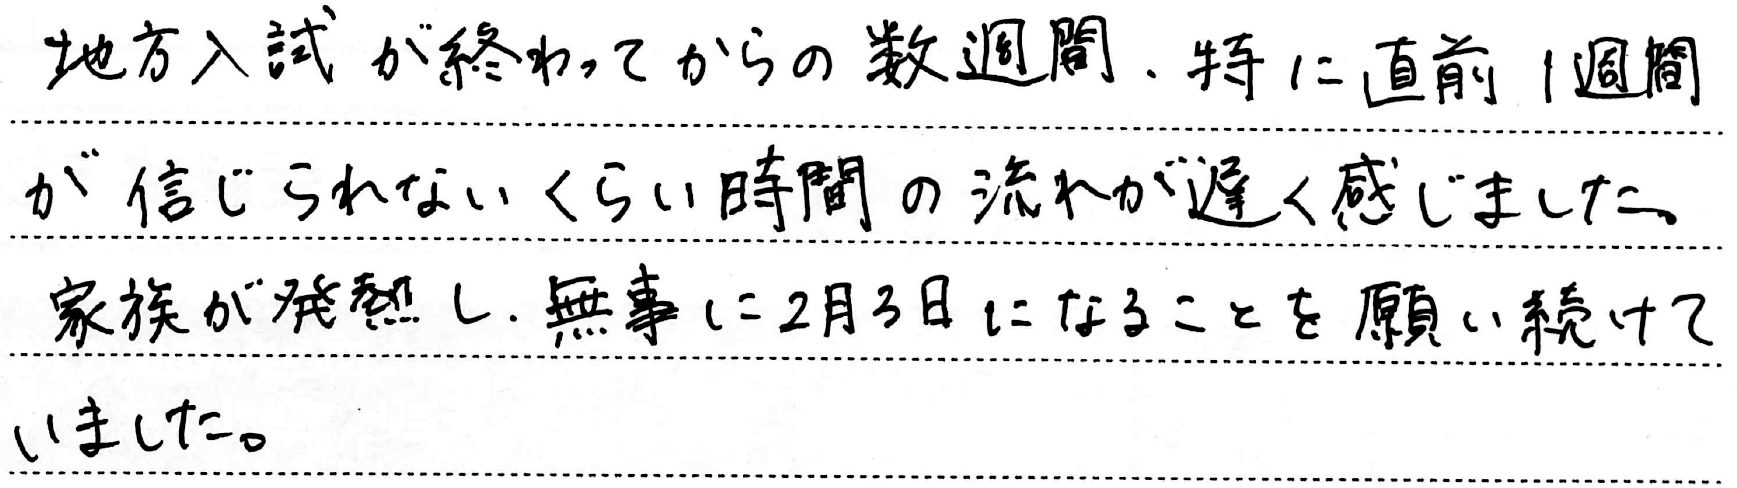 地方入試が終わってからの数週間、特に直前1週間
が信じられないくらい時間の流れが遅く感じました。
家族が発熱し、無事に2月3日になることを願い続けて
いました。